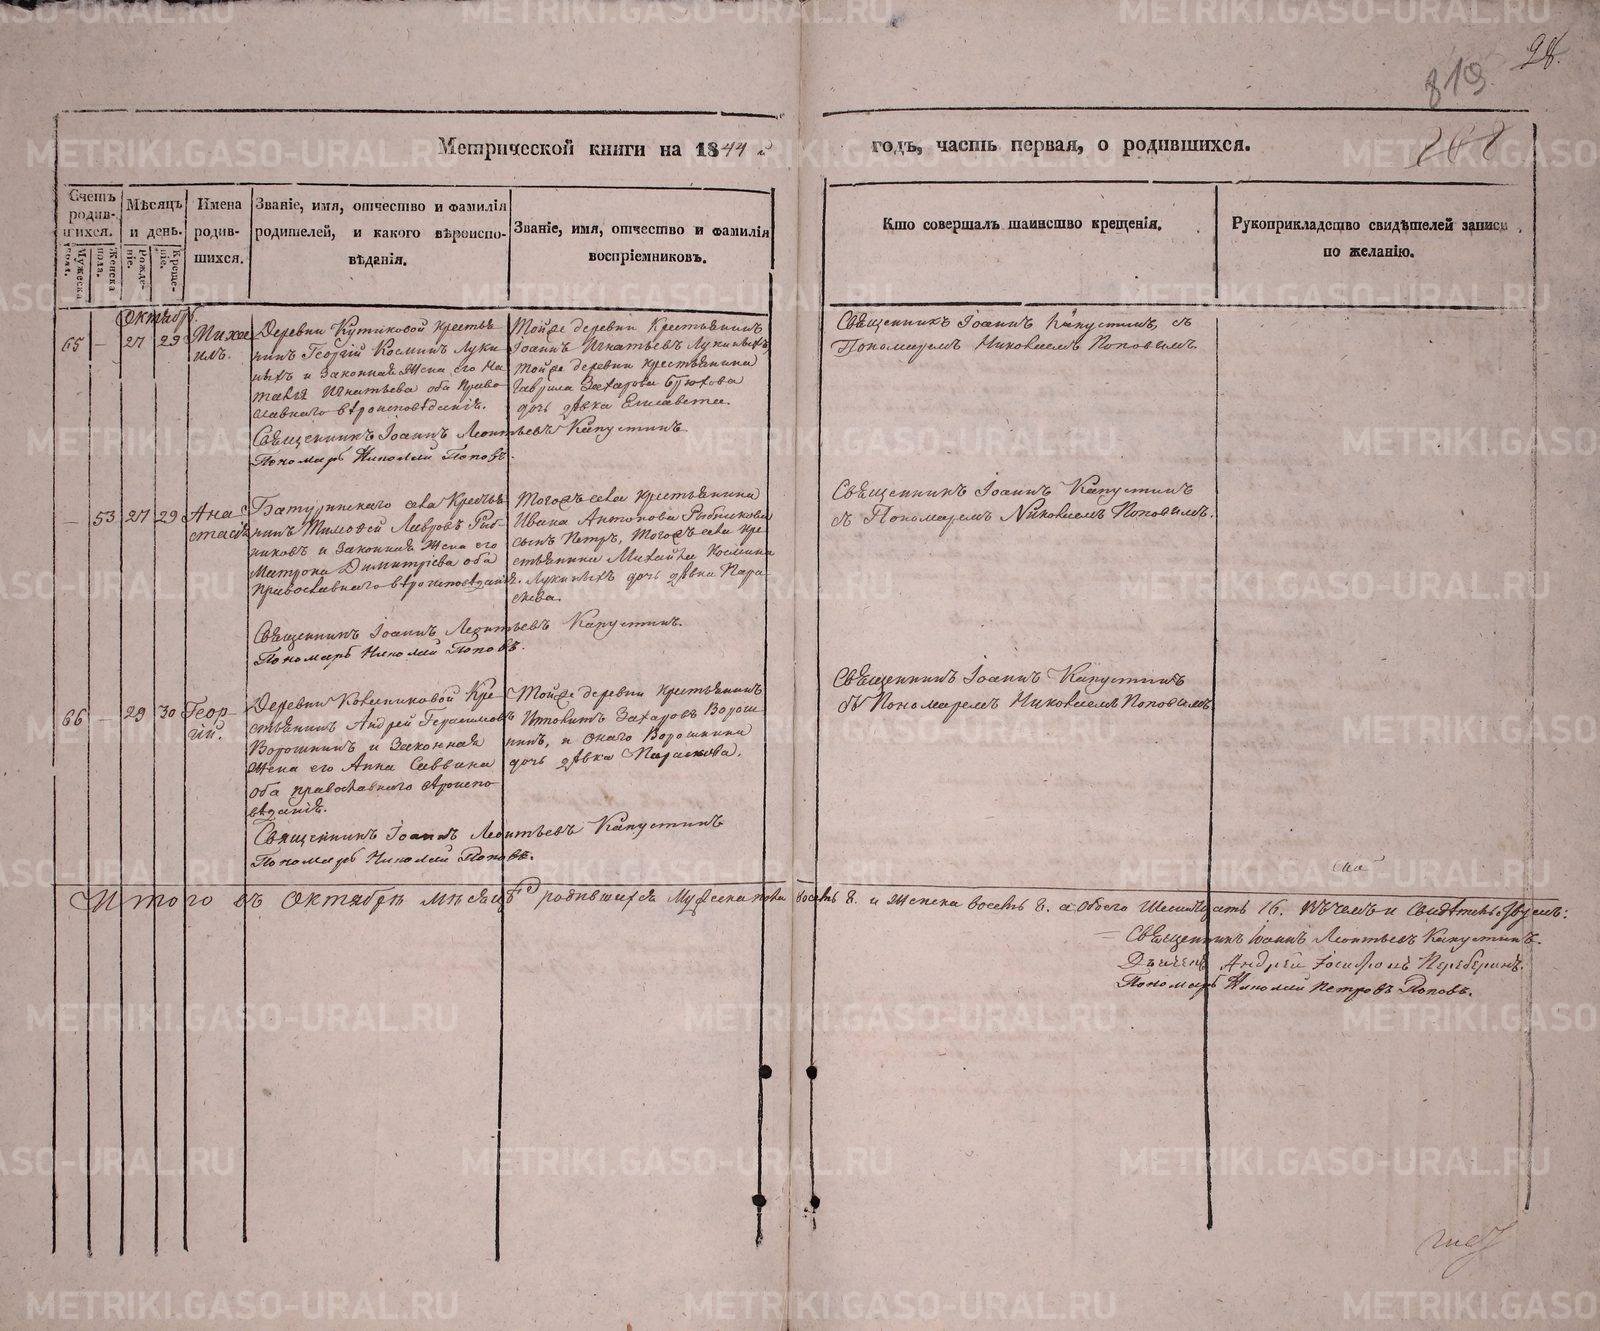 28.
819
Метрической книги на 1844 й
годъ, часть первая, о родившихся.
Счетъ родив-шихся.
Мужеска пола.
Женска пола.
Мѣсяцъ и день.
Рожде-ніе.
Креще-ніе.
Имена
родив-
шихся.
Званіе, имя, отчество и фамилія
родителей, и какого вѣроиспо-
вѣданія.
Званіе, имя, отчество и фамилія
воспріемниковъ.
Кто совершалъ таинство крещенія.
Рукоприкладство свидѣтелей записи
по желанію.
Октябрь.
65 — 27 29
Михаи
илъ.
Деревни Кутиковой крестья
нинъ Георгій Косминъ Луки
ныхъ и законная жена его На
талія Игнатьева оба право
славнаго вѣроисповѣданія.
Священникъ Іоаннъ Леонтьевъ Капустинъ
Пономарь Николай Поповъ.
Тойже деревни крестьянинъ
Іоаннъ Игнатьевъ Лукиныхъ,
тойже деревни крестьянина
Гаврила Захарова
дочь дѣвка Елисавета.
Священникъ Іоаннъ Капустинъ, съ
Пономаремъ Николаемъ Поповымъ.
— 53 27 29
Ана
стасія
Батуринскаго села кресть
нинъ Тимоѳей Лавровъ Рыб-
никовъ и законная жена его
Матрона Димитріева оба
православнаго вѣроисповѣданія.
Священникъ Іоаннъ Леонтьевъ Капустинъ.
Пономарь Николай Поповъ.
Тогожъ села крестьянина
Ивана Антонова Рыбникова
сынъ Петръ, тогожъ села кре
стьянина Михайла Космина
Лукиныхъ дочь дѣвка Пара-
скева.
Священникъ Іоаннъ Капустинъ
съ Пономаремъ Николаемъ Поповымъ.
66 — 29 30
Геор-
гій.
Деревни Ковенниковой кре
стьянинъ Андрей Герасимовъ
Ворошнинъ и законная
жена его Анна Саввина
оба православнаго вѣроиспо
вѣданія.
Священникъ Іоаннъ Леонтьевъ Капустинъ
Пономарь Николай Поповъ.
Тойже деревни крестьянинъ
Захаровъ Ворош-
нинъ, и онаго Ворошнина
дочь дѣвка Параскова.
Священникъ Іоаннъ Капустинъ
съ Пономаремъ Николаемъ Поповымъ
Итого въ октябрѣ мѣсяцѣ родившихся мужеска пола восемь 8. и женска восемь 8. а обоего шестнадцать 16. въ чемъ и свидѣтельствуемъ:
Священникъ Іоаннъ Леонтьевъ Капустинъ.
Андрей
Пономарь Николай Петровъ Поповъ.
METRIKI.GASO-URAL.RU